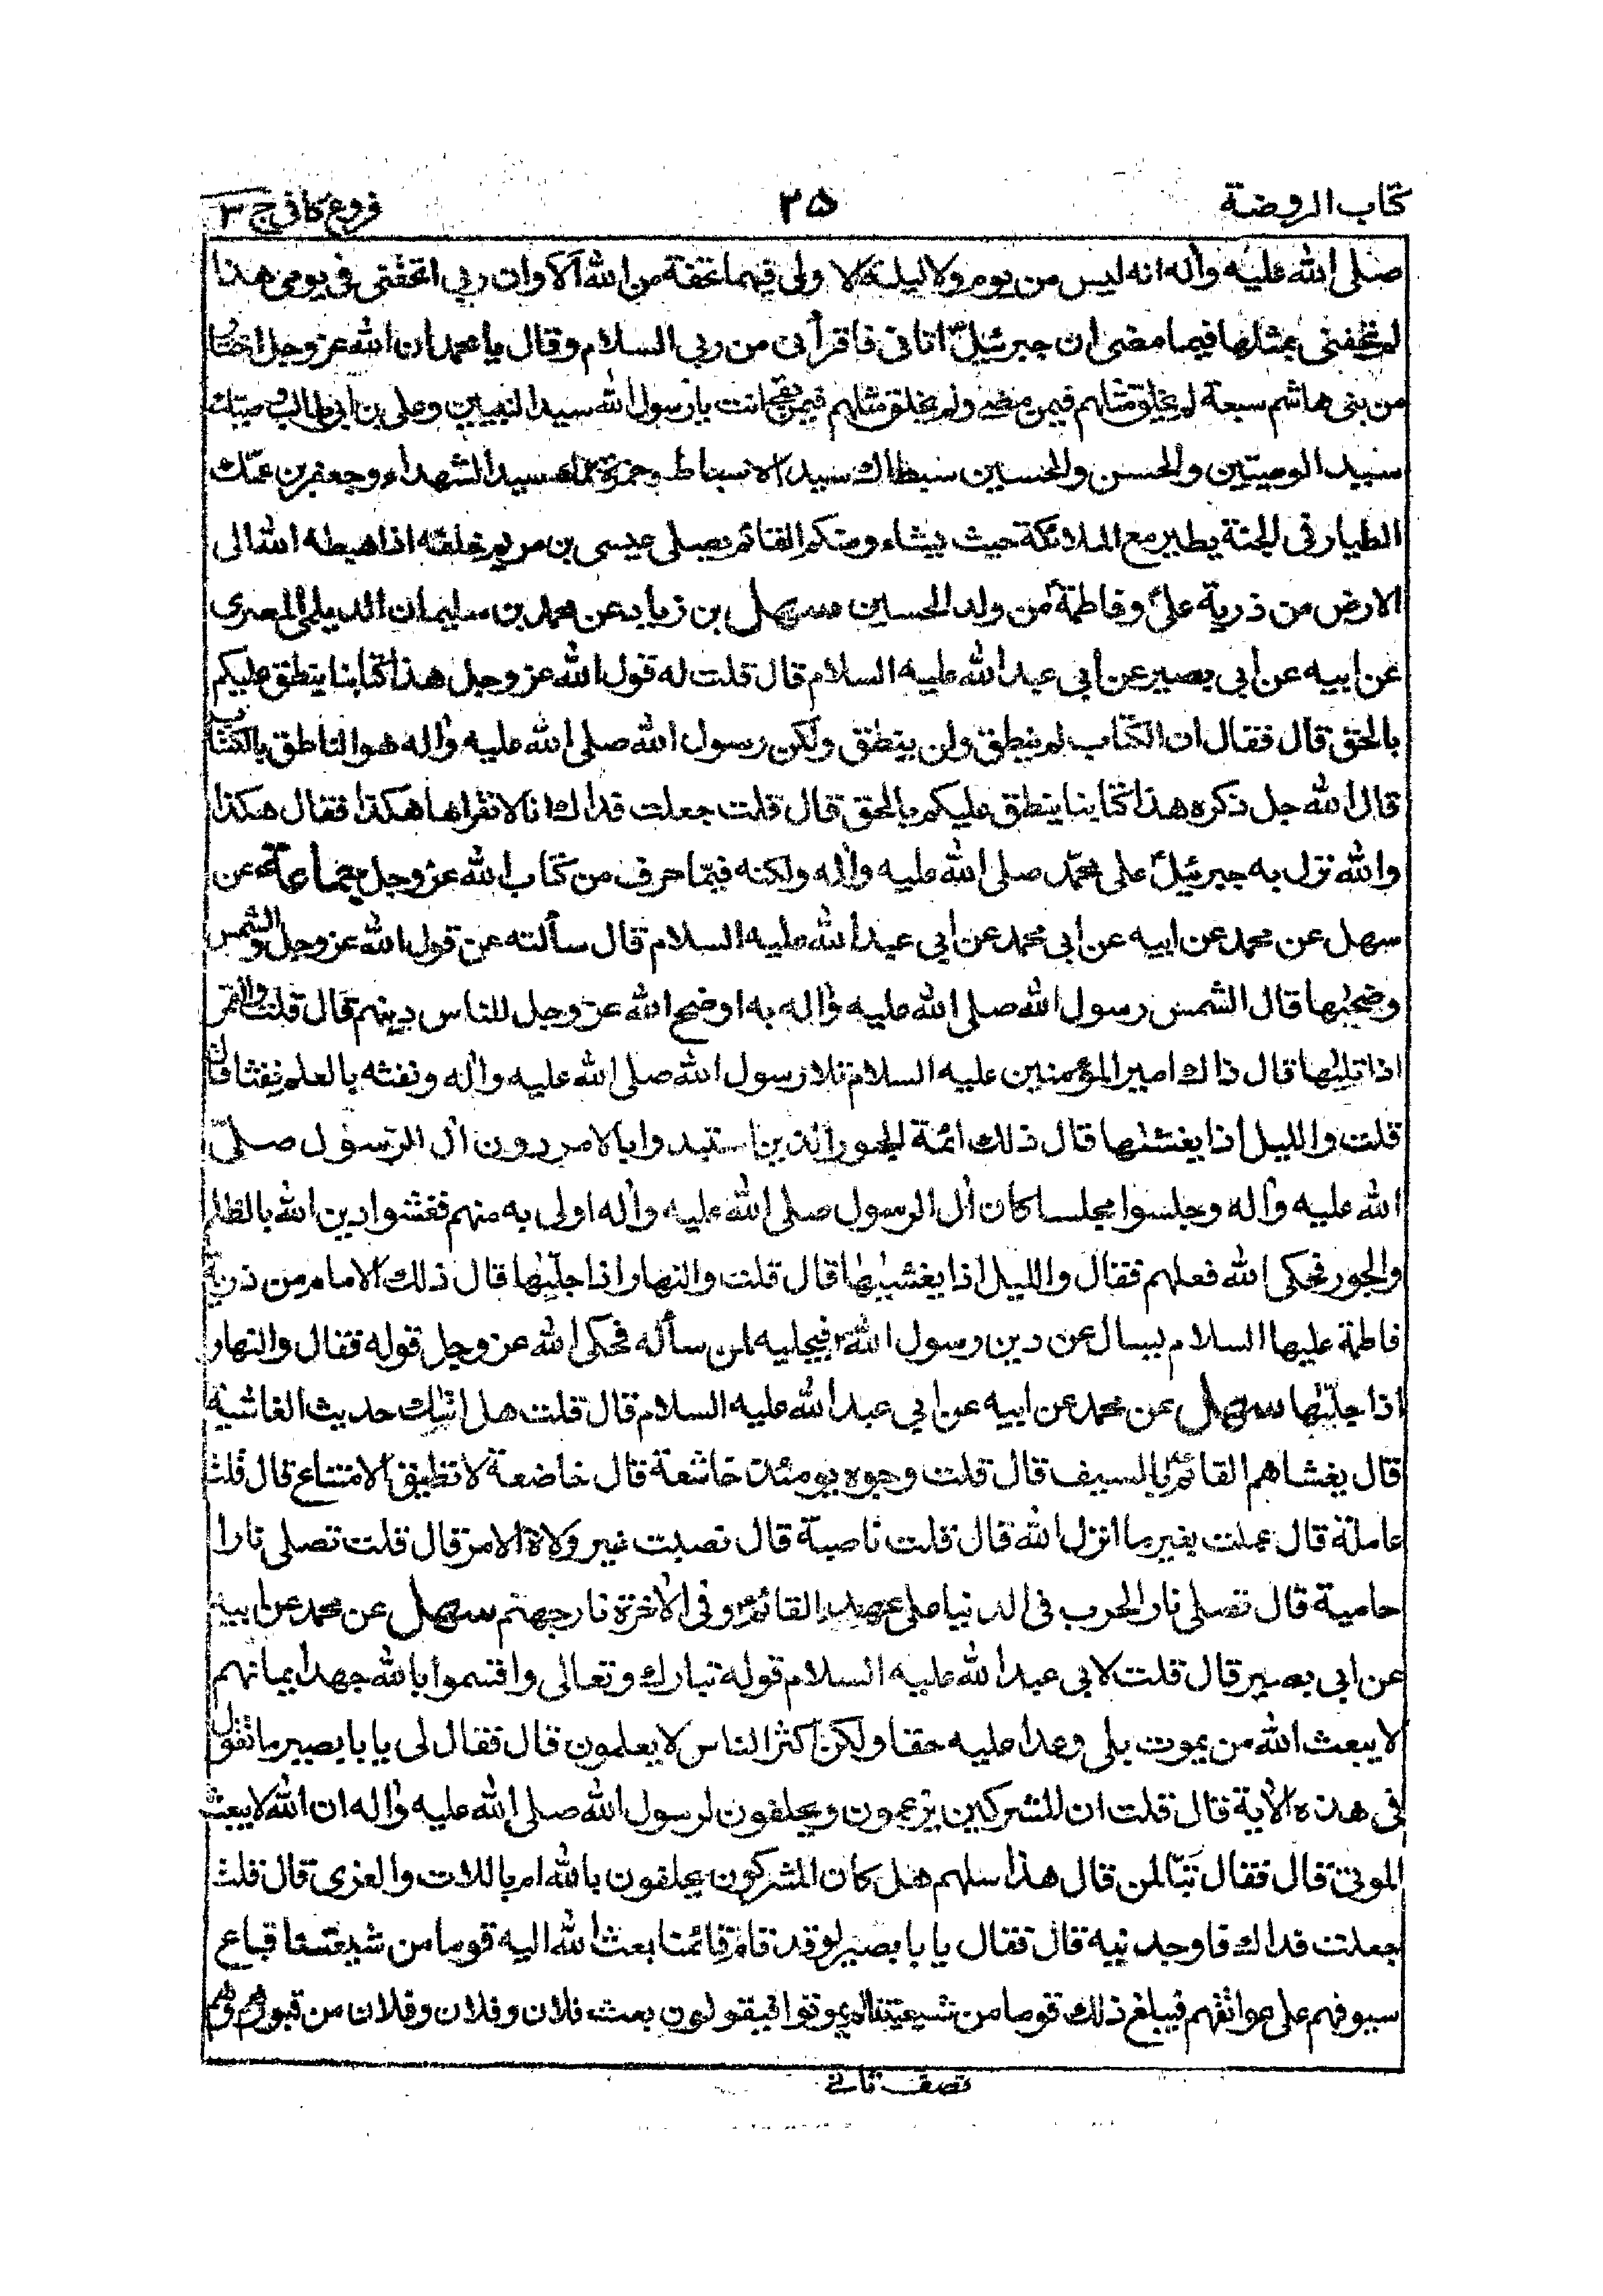 كتاب الروضة ٢٥ فروع كافى ج ٣
صلى الله عليه واٰله انه ليس من يوم ولا ليلة الا ولى فيهما تحفة من الله ألا وان ربى اتحفنى فى يومى هذا
لم يتحفنى بمثلها فيما مضى ان جبرئيلؑ اتانى فاقرأنى من ربى السلام وقال يا محمد ان الله عز وجل اختار
من بنى هاشم سبعة لم يخلق مثلهم فيمن مضى ولم يخلق مثلهم فيمن بقى انت يا رسول الله سيد النبيين وعلى بن ابى طالب وصيك
سيد الوصيين والحسن والحسين سبطاك سيدا الاسباط وحمزة عمك سيد الشهداء وجعفر بن عمك
الطيار فى الجنة يطير مع الملائكة حيث يشاء ومنكم القائم يصلى عيسى بن مريم خلفه اذا اهبطه الله الى
الارض من ذرية علىؑ وفاطمةؑ من ولد الحسين سهل بن زياد عن محمد بن سليمان الديلمى المصرى
عن ابيه عن ابى بصير عن أبى عبد الله عليه السلام قال قلت له قول الله عز وجل هذا كتابنا ينطق عليكم
بالحق قال فقال ان الكتاب لم ينطق ولن ينطق ولكن رسول الله صلى الله عليه واٰله هو الناطق بالكتاب
قال الله جل ذكره هذا كتابنا ينطق عليكم بالحق قال قلت جعلت فداك انا لا نقراها هكذا فقال هكذا
والله نزل به جبرئيلؑ على محمّد صلى الله عليه واٰله ولكنه فيما حرف من كتاب الله عز وجل جماعة عن
سهل عن محمد عن ابيه عن ابى محمد عن ابى عبد الله عليه السلام قال سألته عن قول الله عز وجل والشمس
وضحٰها قال الشمس رسول الله صلى الله عليه واٰله به اوضح الله عز وجل للناس دينهم قال قلت والقمر
اذا تلٰها قال ذاك امير المؤمنين عليه السلام تلا رسول الله صلى الله عليه واٰله ونفثه بالعلم نفثا قال
قلت والليل اذا يغشٰها قال ذلك ائمة الجور الذين استبدوا بالامر دون اٰل الرّسول صلّى
الله عليه واٰله وجلسوا مجلسا كان اٰل الرسول صلى الله عليه واٰله اولى به منهم فغشوا دين الله بالظلم
والجور فحكى الله فعلهم فقال والليل اذا يغشٰيها قال قلت والنهار اذا جلّٰها قال ذلك الامام من ذرية
فاطمة عليها السلام يسال عن دين رسول اللهؐ فيجليه لمن سأله فحكى الله عز وجل قوله فقال والنهار
اذا جلّٰها سهل عن محمد عن ابيه عن ابى عبد الله عليه السلام قال قلت هل اتٰيك حديث الغاشية
قال يغشاهم القائمؑ بالسيف قال قلت وجوه يومئذ خاشعة قال خاضعة لا تطيق الامتناع قال قلت
عاملة قال عملت بغير ما انزل الله قال قلت ناصبة قال نصبت غير ولاة الامر قال قلت تصلى نارا
حامية قال تصلى نار الحرب فى الدنيا على عهد القائمؑ وفى الاٰخرة نار جهنم سهل عن محمد عن ابيه
عن ابى بصير قال قلت لابى عبد الله عليه السلام قوله تبارك وتعالى واقسموا بالله جهد ايمانهم
لا يبعث الله من يموت بلى وعدا عليه حقا ولكن اكثر الناس لا يعلمون قال فقال لى يا با بصير ما تقول
فى هذه الاٰية قال قلت ان المشركين يزعمون ويحلفون لرسول الله صلى الله عليه واٰله ان الله لا يبعث
الموتى قال فقال تبّا لمن قال هذا سلهم هل كان المشركون يحلفون بالله ام باللات والعزى قال قلت
جعلت فداك فاوجدنيه قال فقال يا با بصير لو قد قام قائمنا بعث الله اليه قوما من شيعتنا قباع
سيوفهم على عواتقهم فيبلغ ذلك قوما من شيعتنا لم يموتوا فيقولون بعث فلان وفلان وفلان من قبورهم وهم
نصف ثانى